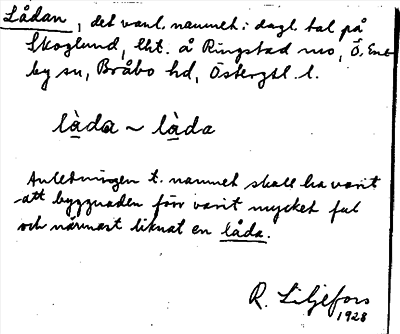 Lådan, det vanl. namnet i dagl. tal på
Skoglund, lht. å Ringstad mo, Ö. Ene-
by sn, Bråbo hd, Östergtl. l.
làda ~ làda
Anledningen t. namnet skall ha varit
att byggnaden förr varit mycket ful
och närmast liknat en låda.
R. Liljefors
1928